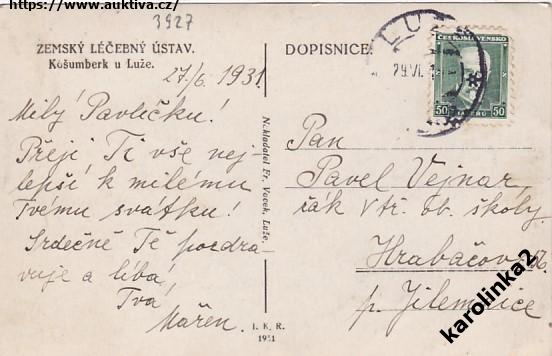 https://www.auktiva.cz/
3927
ZEMSKÝ LÉČEBNÝ ÚSTAV.
Košumberk u Luže.
27/6. 1931.
Milý Pavlíčku!
Přeji Ti vše nej
lepší k milému
Tvému svátku!
Srdečně Tě pozdra
vuje a líbá,
Tvá
Mařen.
Nakladatel Fr. Vocek, Luže.
I. K. R.
1931
DOPISNICE
LUŽE
29.VI.
ČESKOSLOVENSKO
50 HALÉŘŮ 50
Pan
Pavel Vejnar,
žák V tř. ob. školy
Hrabačov
p. Jilemnice
karolinka2